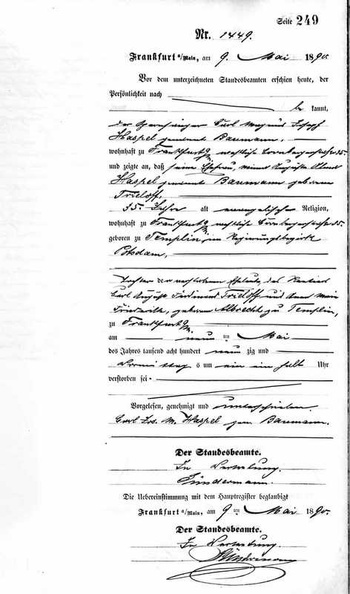 Seite 249
Nr. 1449.
Frankfurt a/Main, am 9. Mai 1890.
Vor dem unterzeichneten Standesbeamten erschien heute, der
Persönlichkeit nach
be kannt,
der Opernsänger Carl Magnus Joseph
Haspel genannt Baumann,
wohnhaft zu Frankfurt a/M,
und zeigte an, daß seine Ehefrau, Minna Auguste
Haspel genannt Baumann geborene
Trieloff
35 Jahre alt evangelischer Religion,
wohnhaft zu Frankfurt a/M,
geboren zu Templin, im Regierungsbezirk
Potsdam,
Tochter der verstorbenen Eheleute, des
Carl August Ferdinand Trieloff und Anna Marie
Friederike, geborene Albrecht zu Templin,
zu Frankfurt a/M
am neun ten Mai
des Jahres tausend acht hundert neun zig und
Vormittags um ein ein halb Uhr
verstorben sei.
Vorgelesen, genehmigt und unterschrieben
Carl Jos. M. Haspel gen. Baumann.
Der Standesbeamte.
In Vertretung.
Die Uebereinstimmung mit dem Hauptregister beglaubigt
Frankfurt a/Main, am 9 ten Mai 1890.
Der Standesbeamte.
In Vertretung.